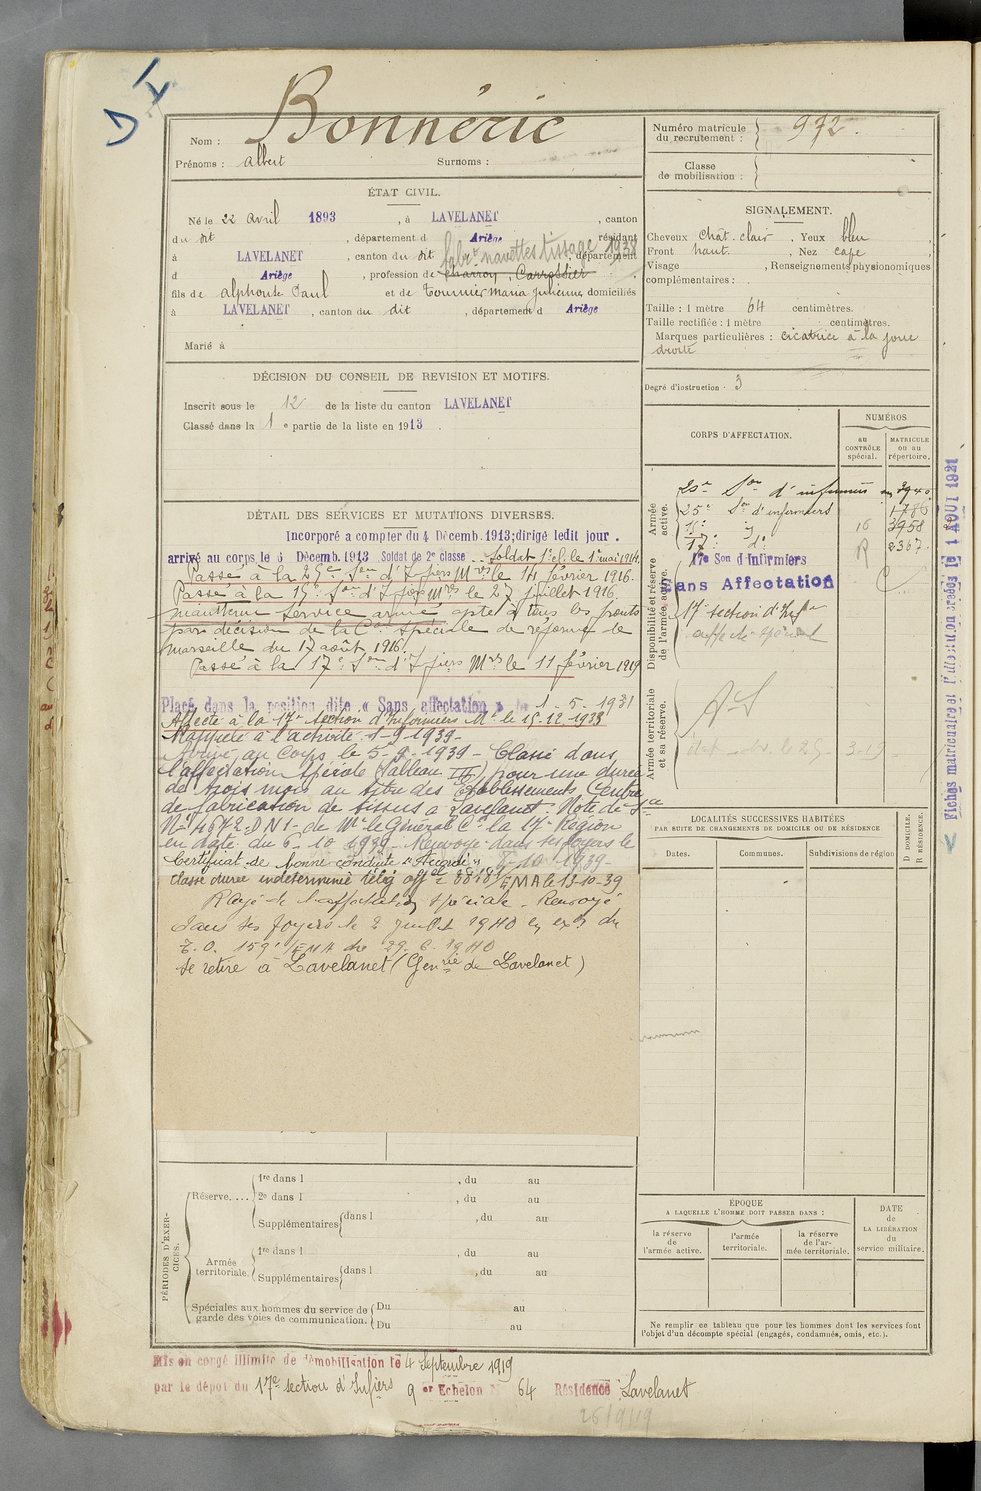 D
Nom : Bonnéric
Prénoms : Albert Surnoms :
Numéro matricule du recrutement : 972.
Classe de mobilisation :
ÉTAT CIVIL.
Né le 22 avril 1893, à LAVELANET, canton
du dit, département d Ariège, résidant
à LAVELANET, canton du dit, département
fabr. navettes tissage 1938
d Ariège, profession de charron, Carrossier
fils de Alphonse Paul et de Tournier Maria Julienne, domiciliés
à LAVELANET, canton du dit, département d Ariège
Marié à
SIGNALEMENT.
Cheveux chât. clair, Yeux bleu
Front haut. , Nez
Visage , Renseignements physionomiques
complémentaires :
Taille : 1 mètre 64 centimètres.
Taille rectifiée : 1 mètre centimètres.
Marques particulières : cicatrice à la joue
droite
Degré d'instruction : 3
DÉCISION DU CONSEIL DE REVISION ET MOTIFS.
Inscrit sous le 12 de la liste du canton LAVELANET
Classé dans la 1e partie de la liste en 1913.
DÉTAIL DES SERVICES ET MUTATIONS DIVERSES.
Incorporé a compter du 4 Décemb. 1913; dirigé ledit jour.
arrivé au corps le 6 Décemb. 1913 Soldat de 2e classe .. Soldat 1e cl. le 1er mai 1914.
Passé à la 25e Son d'Infiers Mres le 14 février 1916.
Passé à la 15e Son d'Infiers Mres le 27 juillet 1916.
Maintenu Service armé apte à tous les
par décision de la Con Spéciale de réforme de
Marseille du 17 août 1916.
Passé à la 17e Son d'Infiers Mres le 11 février 1919
Placé dans la position dite « Sans affectation » le 1-5-1931
Affecté à la 17e Section d'Infirmiers Mre le 15-12-1938
Rappelé à l'activité 1-9-1939-
Arrivé au Corps le 5-9-1939- Classé dans
l'affectation Spéciale (Tableau III) pour une durée
de trois mois au titre des Etablissements, Centre
de fabrication de tissus à Lavelanet. Note de
No 4672-DN1- de Mr le Général Ct la 17e Région
en date du 6-10-1939- Renvoyé dans ses foyers le
Certificat de bonne conduite "Accordé" -10-1939-
Classé durée indéterminée télég off 1/EMA le 19-10-39
Rayé de l'affectation spéciale. Renvoyé
dans ses foyers le 2 juillet 1940 en exon du
T.O. 1591/EMA du 29-6-1940
Se retire à Lavelanet (Genrie de Lavelanet)
CORPS D'AFFECTATION.
NUMÉROS
au CONTRÔLE spécial.
MATRICULE ou au répertoire.
Armée active.
20e Son d'infirmiers 3940
25e Son d'infirmiers 1786
15e d° 16 3958
17e d° R 2367
Disponibilité et réserve de l'armée active.
17e Son d'Infirmiers
Sans Affectation
17e section d'Infres
affecté spécial
Armée territoriale et sa réserve.
AS
Fiches matriculaires et d'mutation créées le 1 AOUT 1921
LOCALITÉS SUCCESSIVES HABITÉES
PAR SUITE DE CHANGEMENTS DE DOMICILE OU DE RÉSIDENCE
Dates.
Communes.
Subdivisions de région
D DOMICILE.
R RÉSIDENCE.
PÉRIODES D'EXERCICES.
Réserve.... 1re dans l , du au
2e dans l , du au
Supplémentaires dans l , du au
Armée territoriale. 1re dans l , du au
Supplémentaires dans l , du au
Spéciales aux hommes du service de garde des voies de communication. Du au
Du au
ÉPOQUE
A LAQUELLE L'HOMME DOIT PASSER DANS :
la réserve de l'armée active.
l'armée territoriale.
la réserve de l'armée territoriale.
DATE de LA LIBÉRATION du service militaire.
Ne remplir ce tableau que pour les hommes dont les services font
l'objet d'un décompte spécial (engagés, condamnés, omis, etc.).
Mis en congé illimité de démobilisation le 4 Septembre 1919
par le dépôt du 17e section d'Infiers 9 er Echelon N° 64 Résidence : Lavelanet
26/9/19